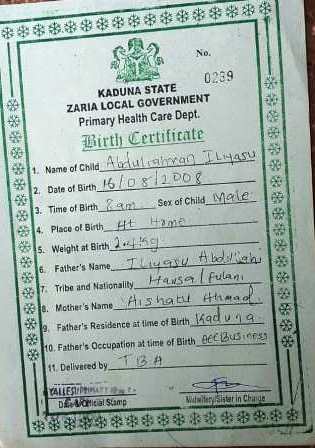 No.
0289
KADUNA STATE
ZARIA LOCAL GOVERNMENT
Primary Health Care Dept.
Birth Certificate
1. Name of Child Abdulrahman Iliyasu
2. Date of Birth 16/08/2008
3. Time of Birth 8am Sex of Child Male
4. Place of Birth At Home
5. Weight at Birth 2.4kg
6. Father's Name Iliyasu
7. Tribe and Nationality Hausa/fulani
8. Mother's Name Aishatu Ahmad
9. Father's Residence at time of Birth Kaduna
10. Father's Occupation at time of Birth Business
11. Delivered by TBA
Date/Official Stamp
Midwifery/Sister in Charge